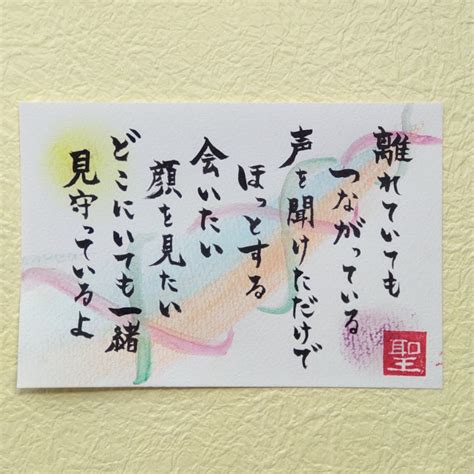 離れていても
つながっている
声を聞けただけで
ほっとする
会いたい
顔を見たい
どこにいても一緒
見守っているよ
聖